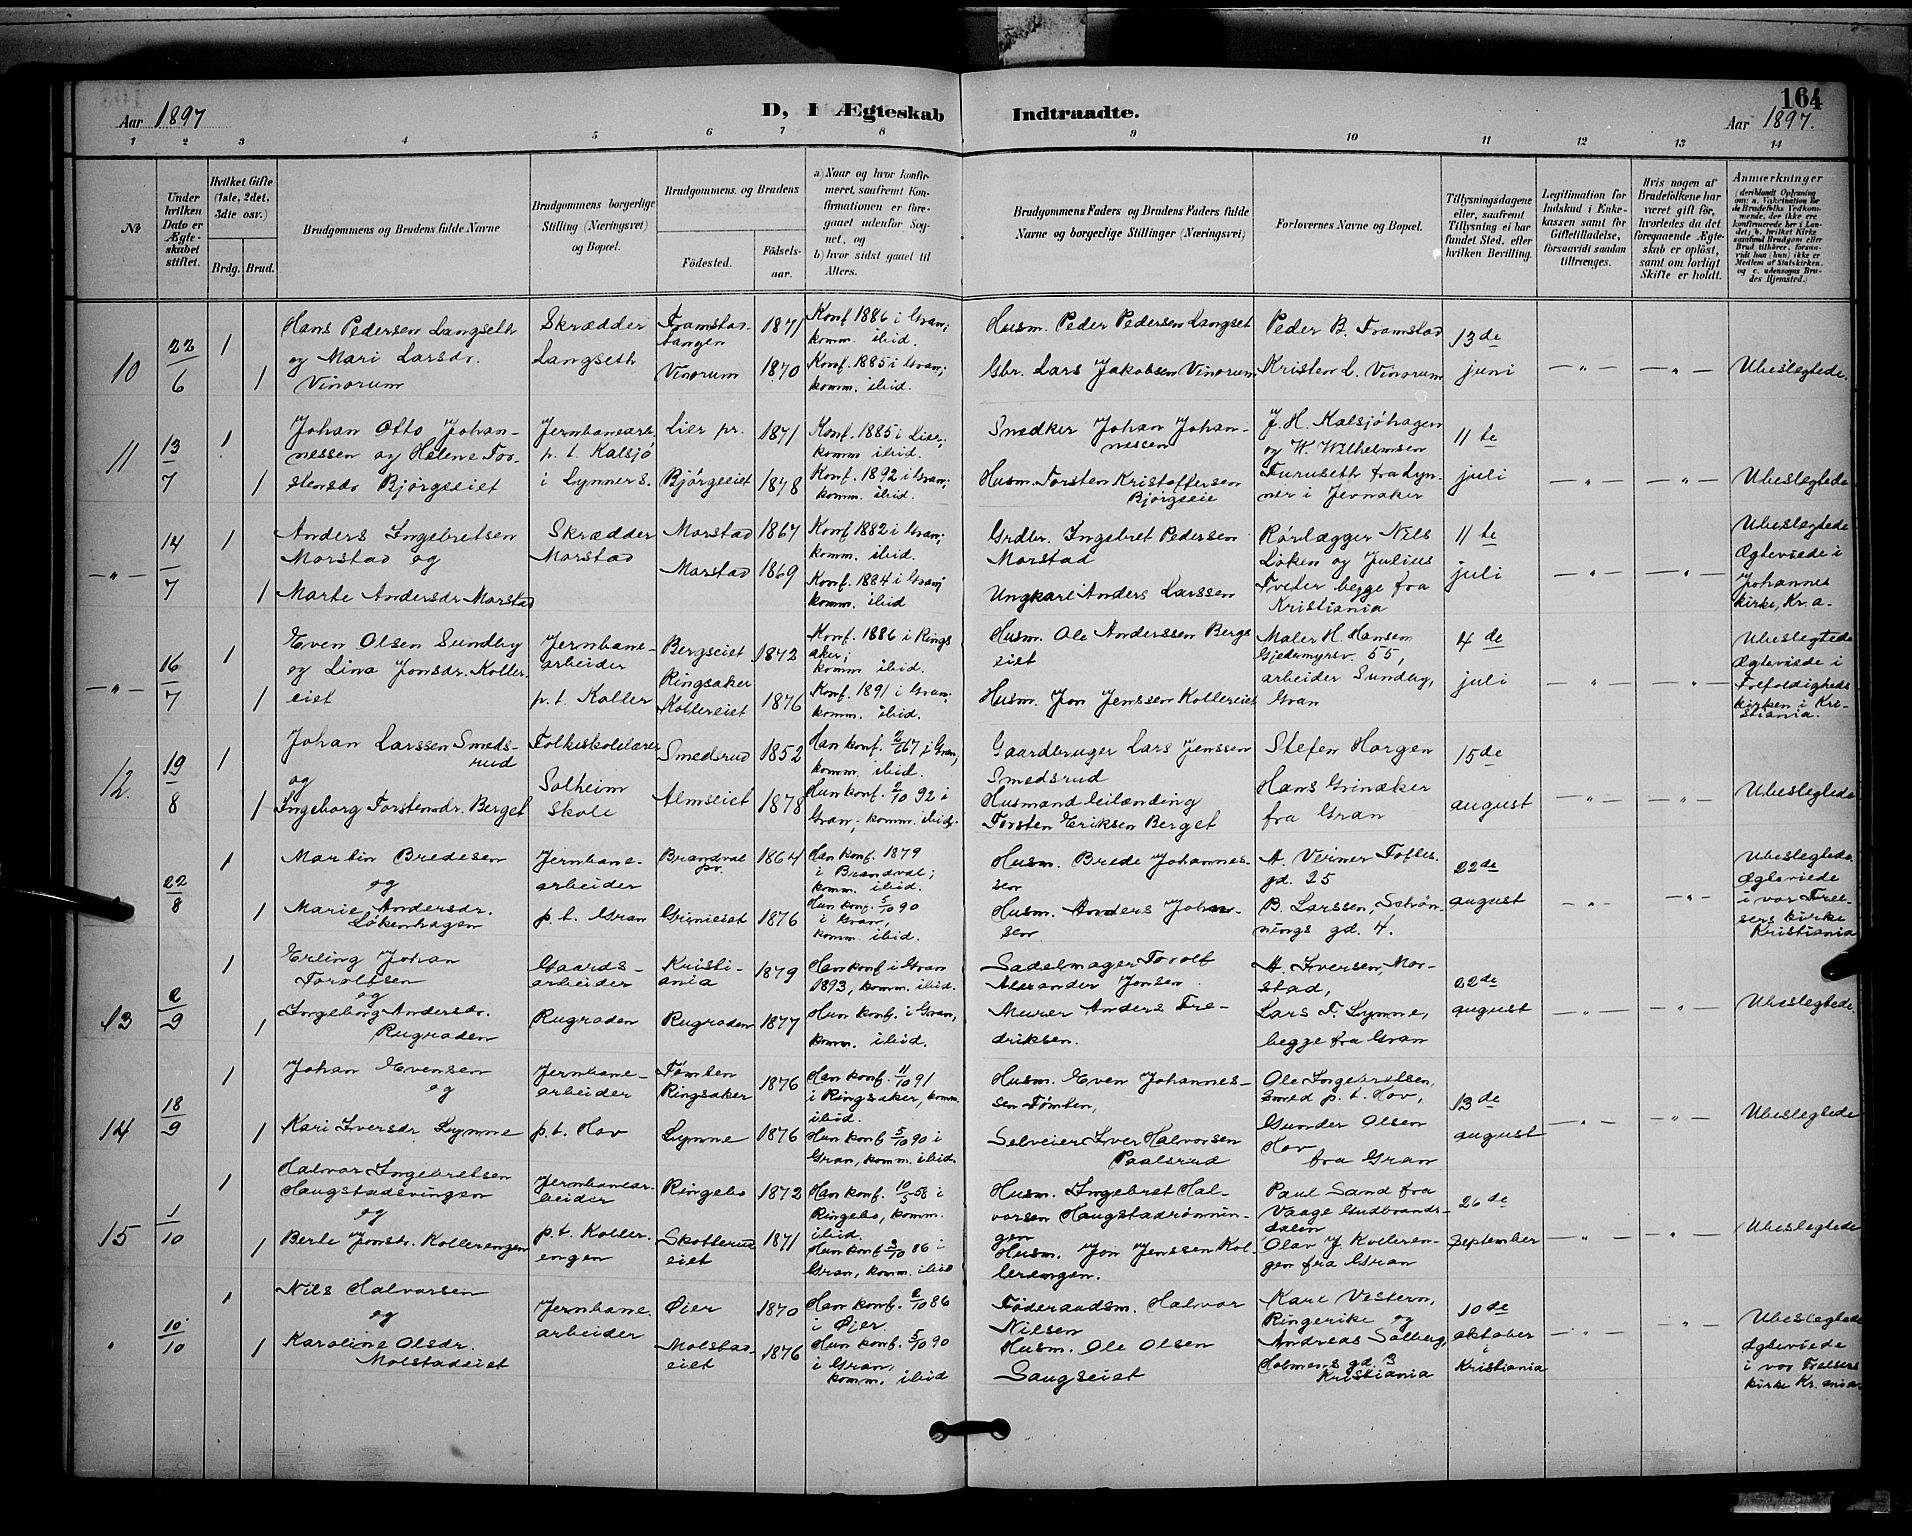 Aar 1897
D, I Ægteskab
Indtraadte.
164
Aar 1897.
1 2 3 4 5 6 7 8 9 10 11 12 13 14
№
Under hvilken Dato er Ægteskabet stiftet.
Hvilket Gifte (1ste, 2det, 3die osv.)
Brdg. Brud.
Brudgommens og Brudens fulde Navne
Brudgommens borgerlige Stilling (Næringsvei) og Bopæl.
Brudgommens og Brudens
Fødested.
Fødselsaar.
a) Naar og hvor konfirmeret, saafremt Konfirmationen er foregaaet udenfor Sognet, og
b) hvor sidst gaaet til Alters.
Brudgommens Faders og Brudens Faders fulde Navne og borgerlige Stillinger (Næringsvei)
Forlovernes Navne og Bopæl.
Tillysningsdagene eller, saafremt Tillysning ei har fundet Sted, efter hvilken Bevilling.
Legitimation for Indskud i Enkekassen samt for Giftetilladelse, forsaavidt saadan tiltrænges.
Hvis nogen af Brudefolkene har været gift før, hvorledes da det foregaaende Ægteskab er opløst, samt om lovligt Skifte er holdt.
Anmærkninger
(deriblandt Oplysning om: a. Vaksination for de Brudefolks Vedkommende, der ikke ere konfirmerede her i Landet; b. hvilket Kirkesamfund Brudgom eller Brud tilhører, forsaavidt han (hun) ikke er Medlem af Statskirken, og c. udensogns Brudes Hjemsted.)
10 22/6 1 Hans Pedersen Langseth Skrædder Framstadtangen 1871 Konf. 1886 i Gran; komm. ibid. Husm. Peder Pedersen Langset Peder B. Framstad 13de
1 og Mari Larsdr. Vinorum Langseth Vinorum 1870 Konf. 1885 i Gran; komm. ibid. Gbr. Lars Jakobsen Vinorum Kristen L. Vinorum juni —"— —"— Ubeslegtede.
11 13/7 1 Johan Otto Johannessen og Helene Jernbanearb. p.t. Kalsjø Lier pr. 1871 Konf. 1885 i Lier; komm. ibid. Smedker Johan Johannessen J. H. Kalsjøhagen og W. Wilhelmsen 11te
1 Torstensdr Bjørgseiet i Lynners. Bjørgeeiet 1878 Konf. 1892 i Gran; komm. ibid. Husm. Torsten Kristoffersen Bjørgseie Furuseth fra Lynner i Jevnaker juli —"— —"— Ubeslegtede
—"— 14/7 1 Anders Ingebretsen Morstad og Skrædder Morstad Morstad 1867 Konf. 1882 i Gran; komm. ibid. Grdbr. Ingebret Pedersen Morstad Rørlægger Nils Løken og Julius 11te
1 Marte Andersdr Morstad Morstad 1869 Konf. 1884 i Gran; komm. ibid Ungkarl Anders Larssen Tveter begge fra Kristiania juli —"— —"— Ubeslegtede Ægteviede i Johannes kirke, Kr.a.
—"— 16/7 1 Even Olsen Sundby Jernbanearbeider Bergseiet Ringsaker 1872 Konf. 1886 i Ringsaker; komm ibid. Husm. Ole Anderssen Bergseiet Maler H. Hansen Gjedemyrsv. 55, 4de
1 og Lina Jonsdr. Kollereiet p.t. Koller Kollereiet 1876 Konf. 1891 i Gran; komm. ibid. Husm. Jon Jenssen Kollereiet arbeider Sundby, Gran juli —"— —"— Ubeslegtede Ægteviede i Trefoldighedskirken i Kristiania.
12. 19/8 1 Johan Larssen Smedsrud Folkeskolelærer Smedsrud 1852 Han konf. 2/6 67 i Gran, komm. ibid. Gaardbruger Lars Jenssen Smedsrud Stefen Horgen 15de
1 og Ingeborg Torstensdr. Berget Solheim Skole Almseiet 1878 Hun konf. 2/10 92 i Gran; komm. ibid. Husmand Leilænding Torsten Eriksen Berget Hans Grinaker fra Gran august —"— —"— Ubeslegtede
22/8 1 Martin Bredesen og Jernbanearbeider Brandval pr. 1864 Han konf. 1879 i Brandval; komm. ibid. Husm. Brede Johannessen A. Verner Toftes gd. 25 22de
1 Marie Andersdr. Løkenhagen p.t. Gran 1876 Hun konf. 5/10 90 i Gran, komm. ibid. Husm. Anders Johnsen B. Larssen, Schønnings gd. 4. august —"— —"— Ubeslegtede. Ægteviede i vor Frelsers kirke Kristiania
13 2/9 1 Erling Johan Torolfsen og Gaardsarbeider Kristiania 1879 Han konf i Gran 1893, komm. ibid. Sadelmager Torolf Alexander Jensen A. Iversen, Morstad, 22de
1 Ingeborg Andersdr. Rugraden Rugraden Rugraden 1877 Hun konf. i Gran, komm. ibid. Murer Anders Fredriksen. Lars T. Lymne, begge fra Gran august —"— —"— Ubeslegtede.
14 18/9 1 Johan Evensen og Jernbanearbeider Tømten Ringsaker 1876 Han konf. 11/10 91 i Ringsaker, komm. ibid. Husm. Even Johannessen Tømten, Ole Ingebretsen, smed p.t. Hov, 13de
1 Kari Iversdr. Lymne p.t. Hov Lymne 1876 Hun konf. 5/10 90 i Gran, komm. ibid. Selveier Iver Halvorsen Paalsrud Gunder Olsen Hov fra Gran august —"— —"— Ubeslegtede
15 1/10 1 Halvor Ingebretsen Haugstadsvingen og Jernbanearbeider Ringebo 1872 Han konf. i Ringebo, komm. ibid. Husm. Ingebret Halvorsen Haugstadrønningen Paul Sand fra Vaage Gudbrandsdalen 26de
1 Berte Jonsdr. Kollerengen p.t. Kollerengen Skotterudeiet 1871 Hun konf. 3/10 86 i Gran, komm. ibid Husm. Jon Jenssen Kollerengen. Olav J. Kollerengen fra Gran September —"— —"— Ubeslegtede
" 10/10 1 Nils Halvorsen og Jernbanearbeider Øier 1870 Han konf. 2/10 86 i Øier Føderaadsm. Halvor Nilsen Karl Vestern, Ringerike og 10de
1 Karoline Olsdr. Molstadeiet Molstadeiet 1876 Hun konf. 5/10 90 i Gran, komm. ibid Husm. Ole Olsen Saugseiet Andreas Solberg, Holmens gd. 3 Kristiania oktober i Kristiania —"— —"— Ubeslegtede Ægteviede i vor Frelsers kirke Kr.ania